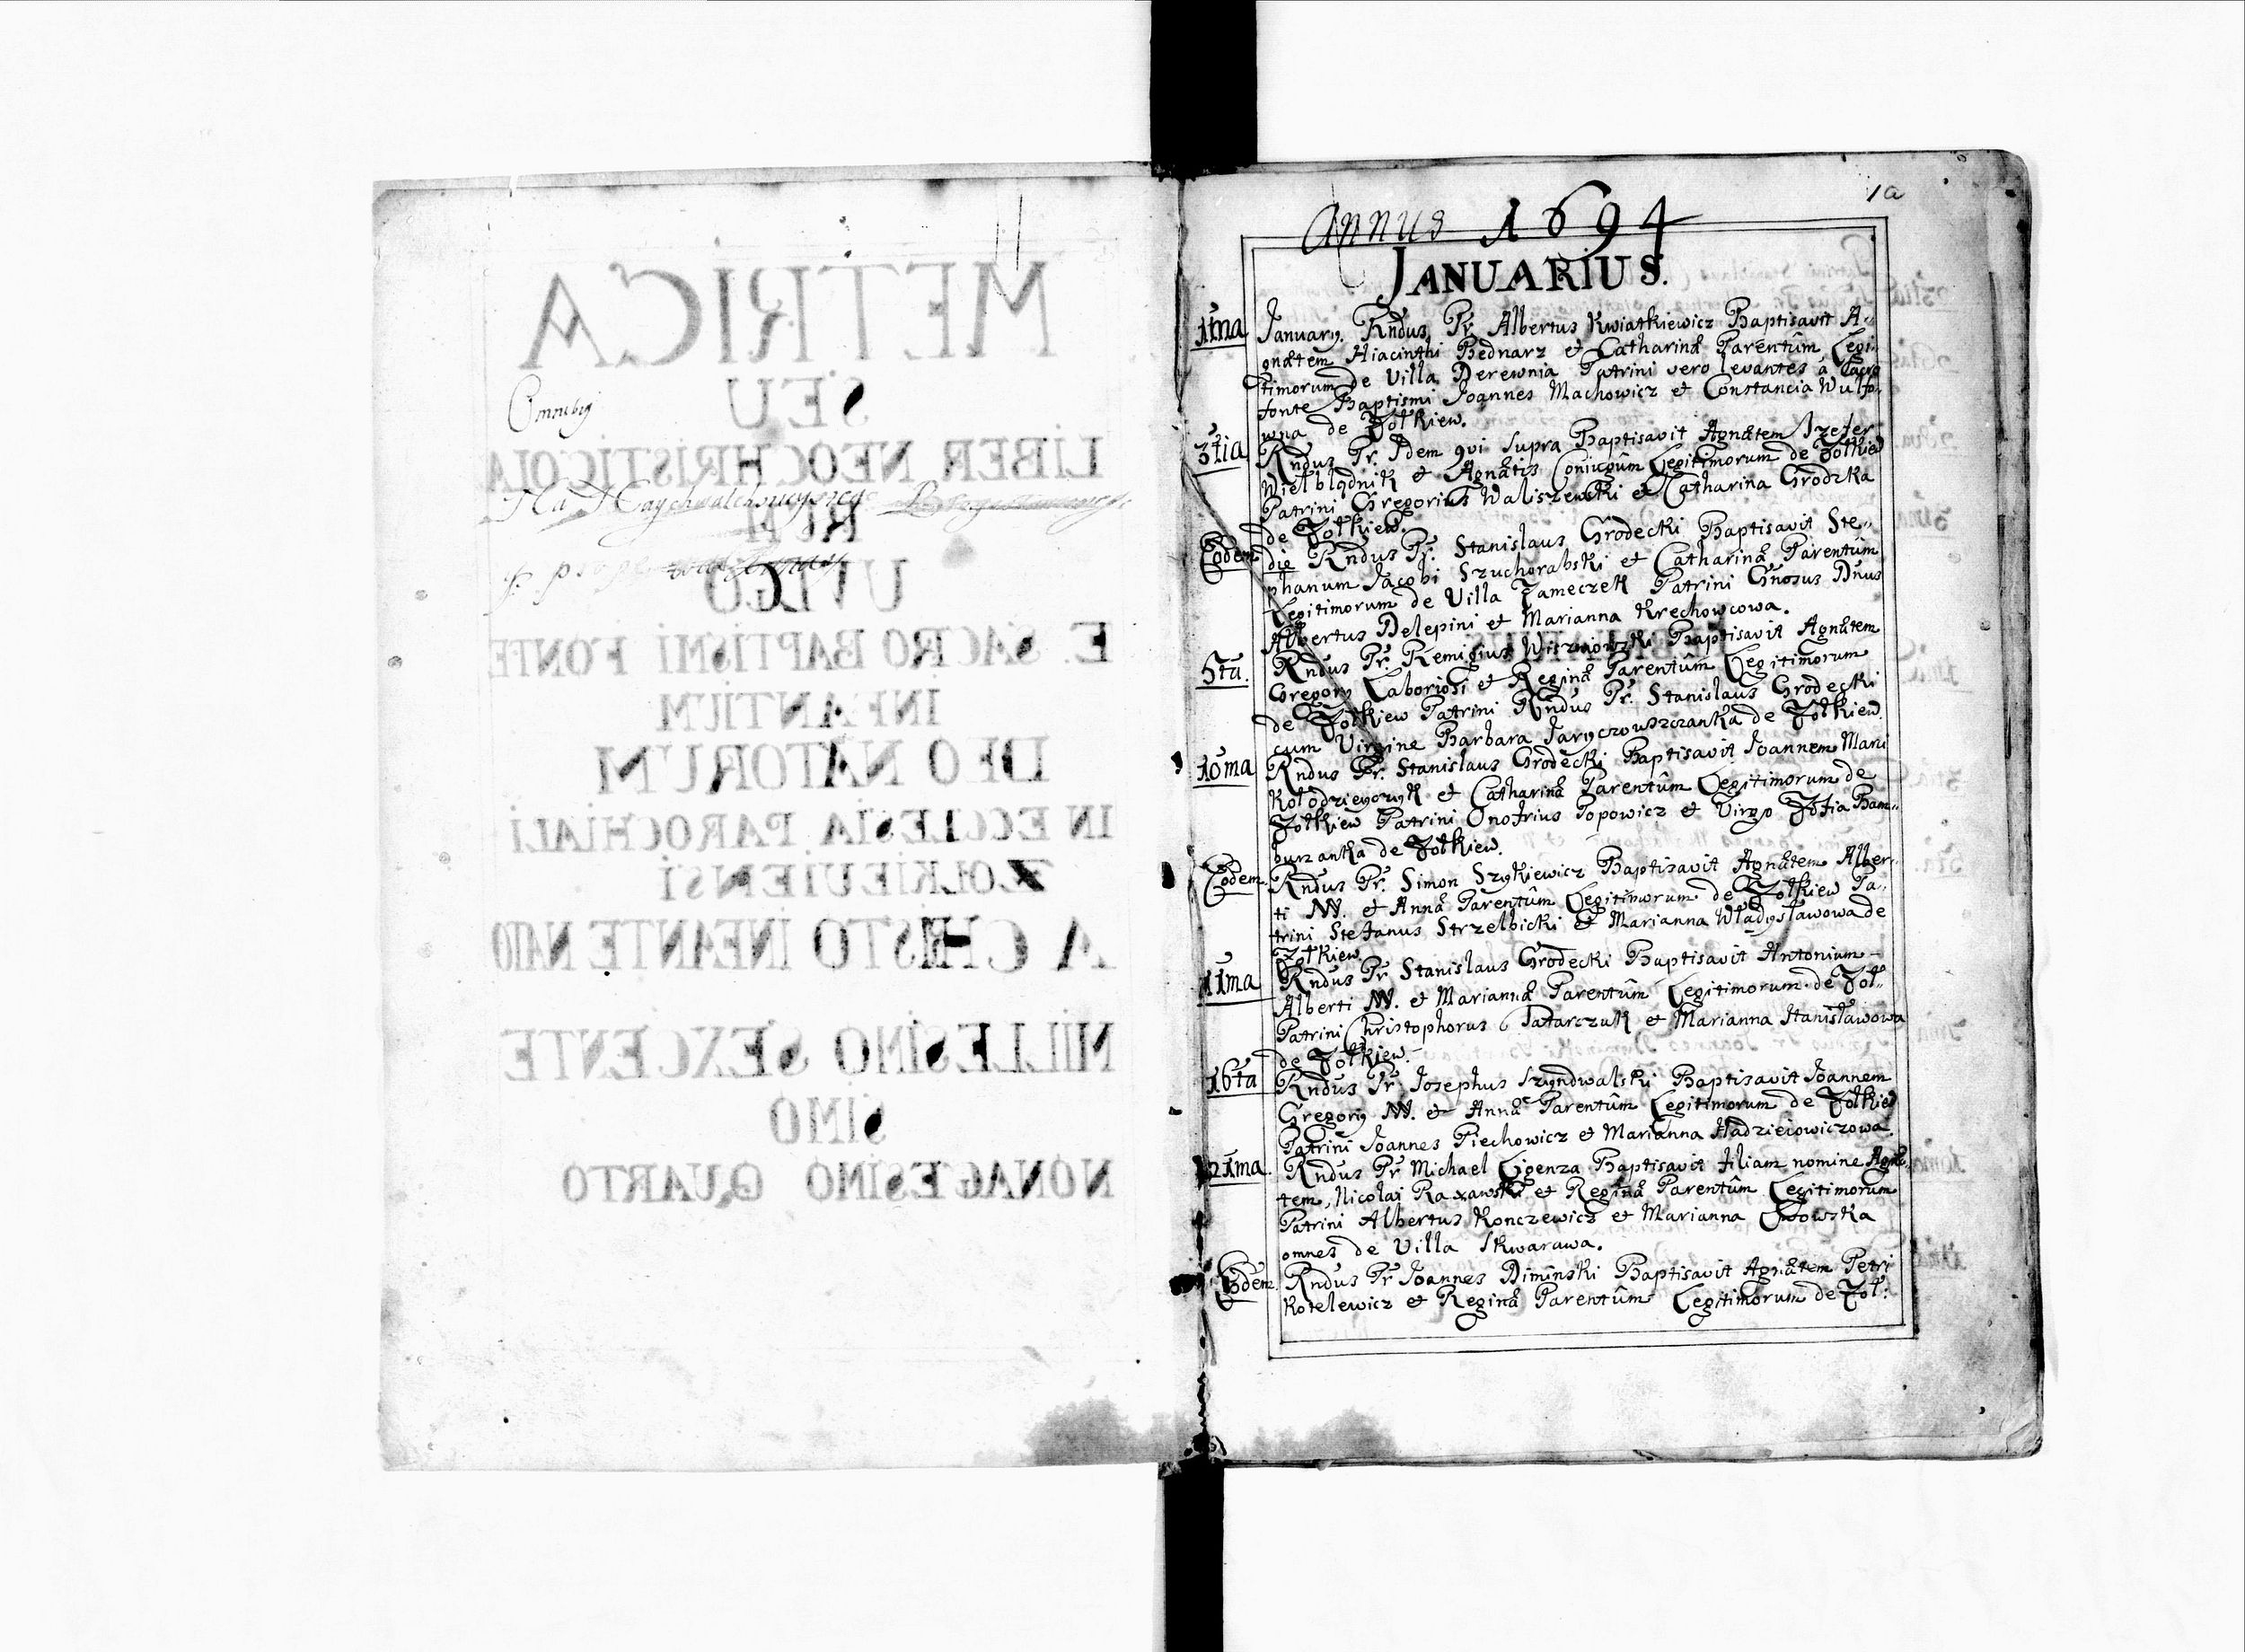 METRICA
SEU
Omnibus
LIBER NEOCHRISTICOLA
Na Naychwalebnieyszego
RUM
UVLGO
E SACRO BAPTISMI FONTE
INFANTIUM
DEO NATORUM
IN ECCLESIA PAROCHIALI
ZOLKIEVIENSI
A CHRISTO INFANTE NATO
MILLESIMO SEXCENTE
SIMO
NONAGESIMO QUARTO
1a
Annus 1694
JANUARIUS.
1ma Januarij. Rndus Pr. Albertus Kwiatkiewicz Baptisavit A-
gnætem Hiacinthi Bednarz et Catharinæ Parentûm Legi-
timorum de Villa Derewnia Patrini vero levantes à Sacro
fonte Baptismi Joannes Machowicz et Constancia Wulfo-
wna de Zołkiew.
3tia Rndus Pr. Idem qvi supra Baptisavit Agnætem Jzefer
Wielblądnik et Agnætis Coniugûm Legitimorum de Zołkiew
Patrini Gregorius Waliszewski et Catharina Grodzka
de Zołkiew.
Eodem die Rndus Pr. Stanislaus Grodecki Baptisavit Ste-
phanum Jacobi Szuchorabski et Catharinæ Parentûm
Legitimorum de Villa Zameczek Patrini Gnosus Dnus
Albertus Delepini et Marianna Krechowcowa.
5ta. Rndus Pr. Remigius Wiszniowski Baptisavit Agnætem
Gregorij Laboriosi et Reginæ Parentûm Legitimorum
de Zołkiew Patrini Rndus Pr. Stanislaus Grodecki
cum Virgine Barbara Jaryczowszczanka de Zołkiew.
10ma Rndus Pr. Stanislaus Grodecki Baptisavit Joannem Mani
Kołodzieyczyk et Catharinæ Parentûm Legitimorum de
Zołkiew Patrini Onofrius Popowicz et Virgo Zofia Bam-
burzanka de Zołkiew.
Eodem. Rndus Pr. Simon Szykiewicz Baptisavit Agnætem Alber-
ti NN. et Annæ Parentûm Legitimorum de Zołkiew Pa-
trini Stefanus Strzelbicki et Marianna Władysławowa de
Zołkiew.
11ma Rndus Pr. Stanislaus Grodecki Baptisavit Antonium
Alberti NN. et Mariannæ Parentûm Legitimorum de Zoł-
Patrini Christophorus Tatarczuk et Marianna Stanisławowa
de Zołkiew.
16ta Rndus Pr. Josephus Szyndwalski Baptisavit Joannem
Gregorij NN. et Annæ Parentûm Legitimorum de Zołkiew
Patrini Joannes Piechowicz et Marianna Hadzieiowiczowa.
21ma. Rndus Pr Michael Ligenza Baptisavit filiam nomine Agnæ-
tem, Nicolai Raxawski et Reginæ Parentûm Legitimorum
Patrini Albertus Konczewicz et Marianna
omnes de Villa Skwarawa.
Eodem. Rndus Pr Joannes Diminski Baptisavit Agnætem Petri
Kotelewicz et Reginæ Parentûm Legitimorum de Zoł: